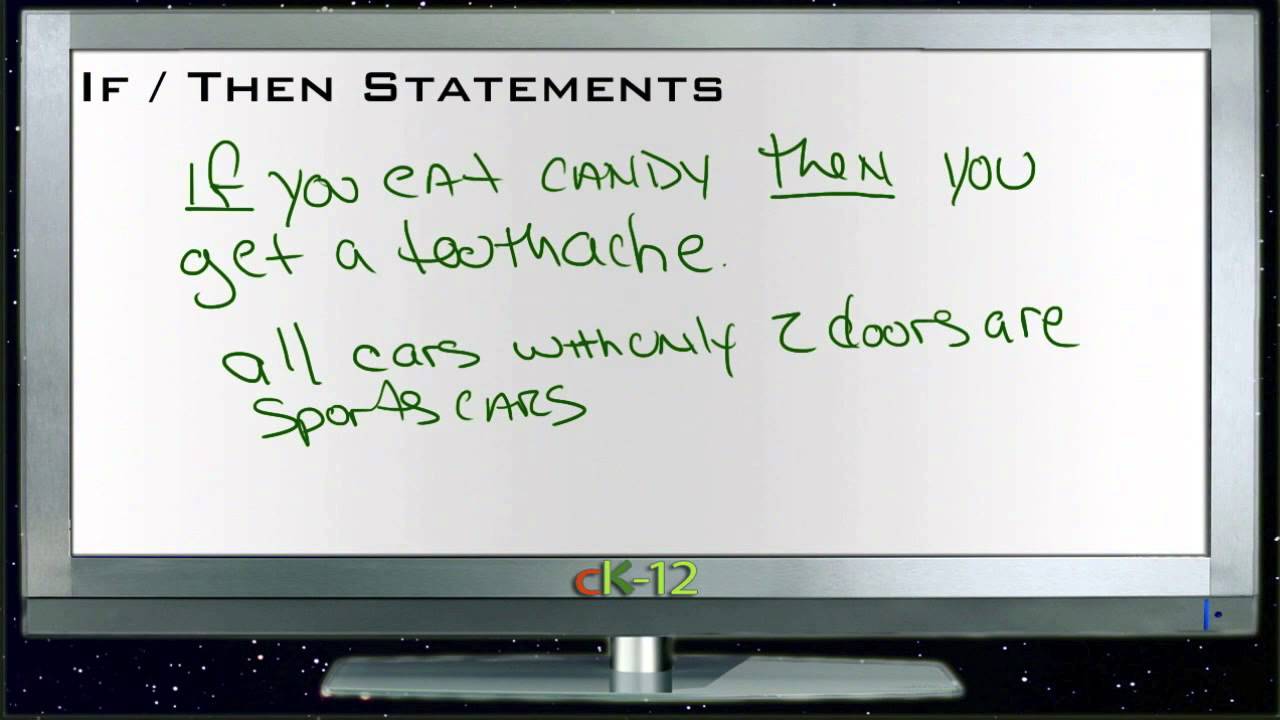 IF / THEN STATEMENTS
If you eat CANDY then you
get a toothache.
all cars with only 2 doors are
Sports CARS
cK-12